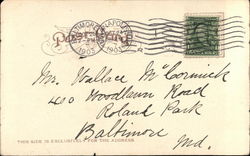 Post Card
1905
Mr. Wallace McCormick
400 Woodlawn Road
Roland Park
Baltimore
Md.
THIS SIDE IS EXCLUSIVELY FOR THE ADDRESS